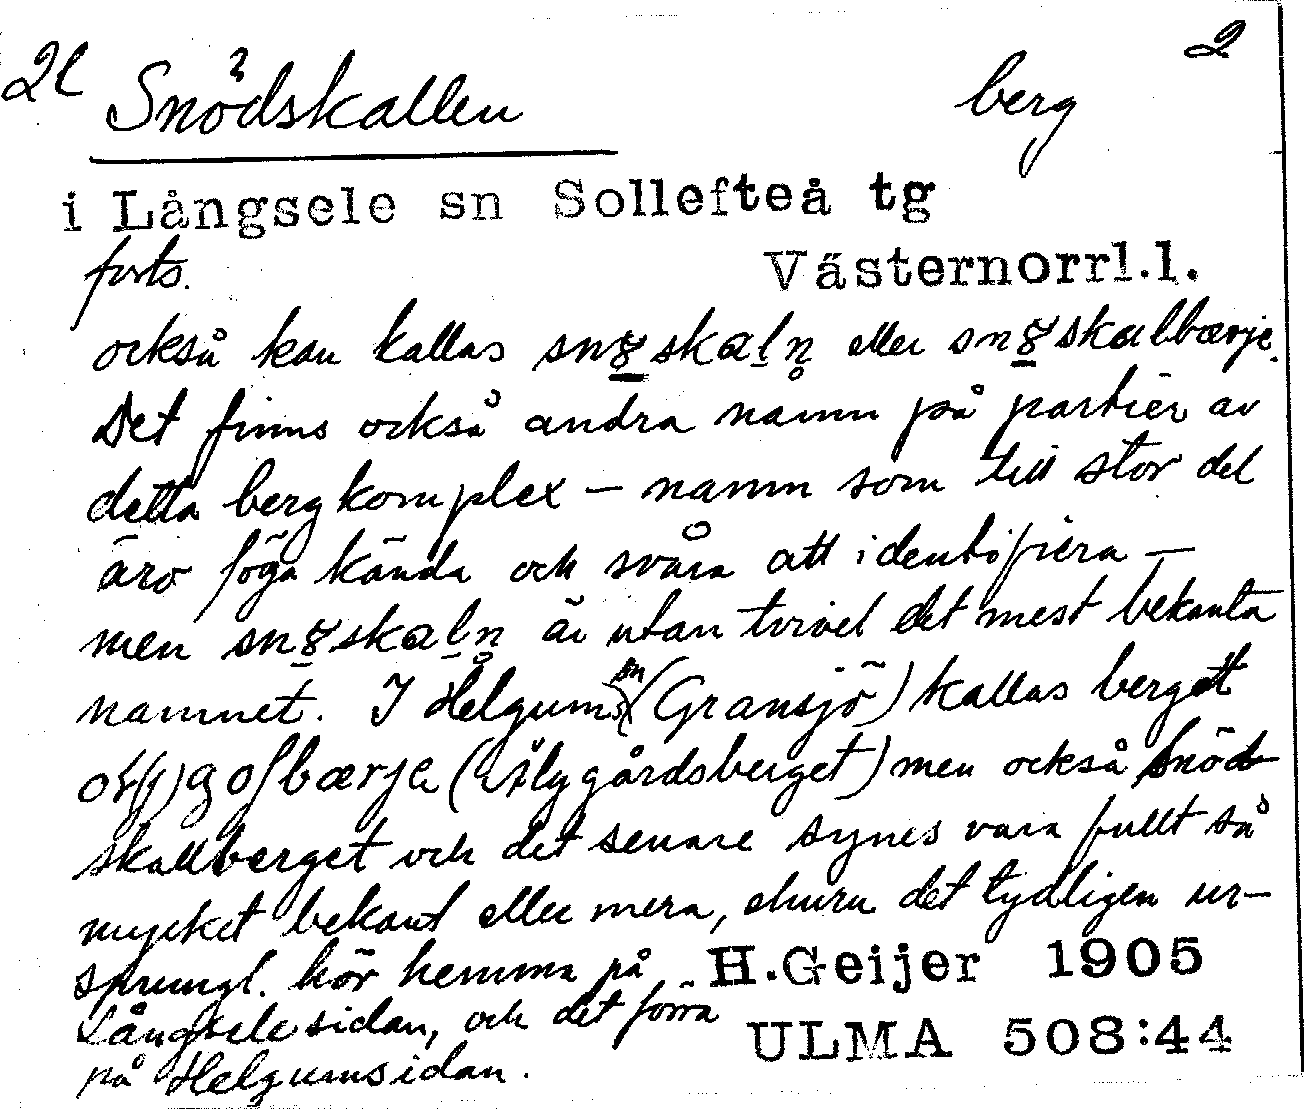 2l Snödskallen berg 2
i Långsele sn Sollefteå tg
forts. Västernorrl.l.
också kan kallas eller
Det finns också andra namn på partier av
detta bergkomplex – namn som till stor del
äro föga kända och svåra att identifiera –
men är utan tvivel det mest bekanta
namnet. I Helgums sn (Gransjö) kallas berget
(Älggårdsberget) men också Snöd-
skallberget och det senare synes vara fullt så
mycket bekant eller mera, ehuru det tydligen ur-
sprungl. hör hemma på H.Geijer 1905
Långselesidan, och det förra
på Helgumsidan. ULMA 508:44